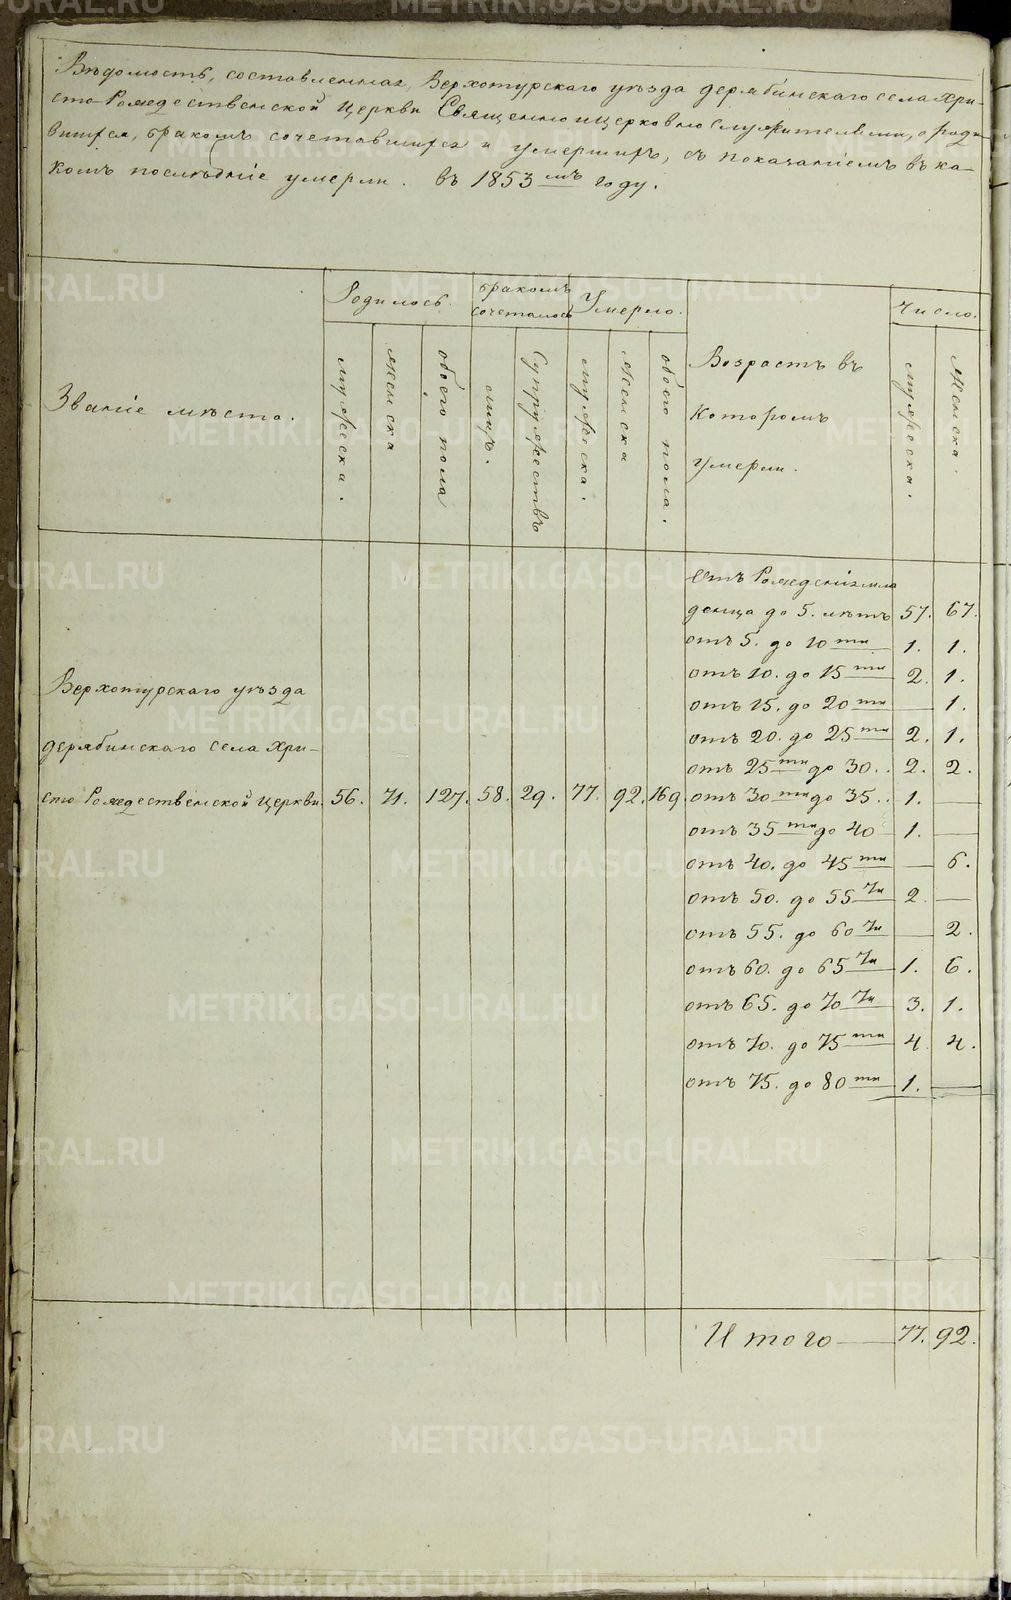 Вѣдомость, составленная, Верхотурскаго уѣзда дерябинскаго села Хри-
сто-Рождественской Церкви Священно и церковнослужителями, о роди-
вшихся, бракомъ сочетавшихся и умершихъ, съ показаніемъ въ ка-
комъ послѣдніе умерли. въ 1853 мъ году.
Званіе мѣста.
Родилось.
бракомъ сочеталось
Умерло.
Возрастъ въ которомъ умерли.
Число.
мужеска.
женска
обоего пола
лицъ.
Супружествъ
мужеска.
женска
обоего пола.
мужеска.
женска.
Верхотурскаго уѣзда
дерябинскаго села Хри-
сто Рождественской Церкви. 56. 71. 127. 58. 29. 77. 92. 169.
Отъ Рожденія мла
денца до 5. лѣтъ 57. 67.
отъ 5. до 10 ти 1. 1.
отъ 10. до 15 ти 2. 1.
отъ 15. до 20 ти — 1.
отъ 20. до 25 ти 2. 1.
отъ 25 ти до 30. 2. 2.
отъ 30 ти до 35. 1. —
отъ 35 ти до 40 1. —
отъ 40. до 45 ти — 6.
отъ 50. до 55 ти 2. —
отъ 55. до 60 ти — 2.
отъ 60. до 65 ти 1. 6.
отъ 65. до 70 ти 3. 1.
отъ 70. до 75 ти 4. 4.
отъ 75. до 80 ти 1. —
Итого — 77. 92.
METRIKI.GASO-URAL.RU